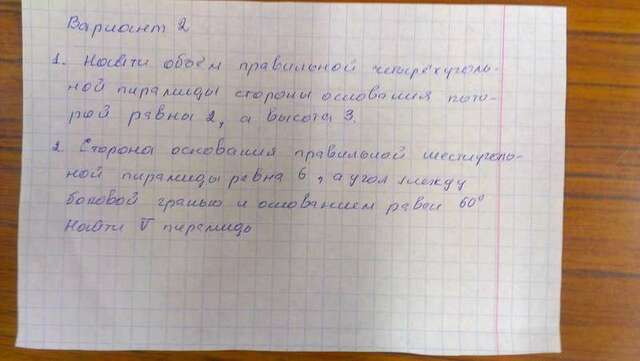 Вариант 2
1. Найти объём правильной четырёхуголь-
ной пирамиды стороны основания кото-
рой равны 2, а высота 3.
2 Сторона основания правильной шестиуголь-
ной пирамиды равна 6, а угол между
боковой гранью и основанием равен 60°
Найти V пирамиды